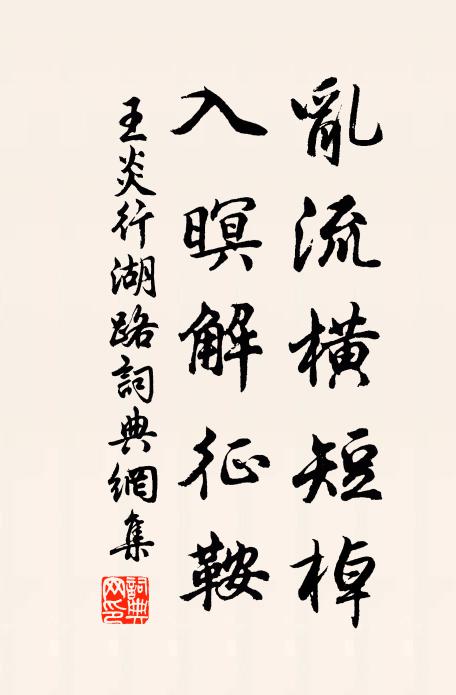 亂流橫短棹
入暝解征鞍
王炎行湖路詞典網集
詞典網印